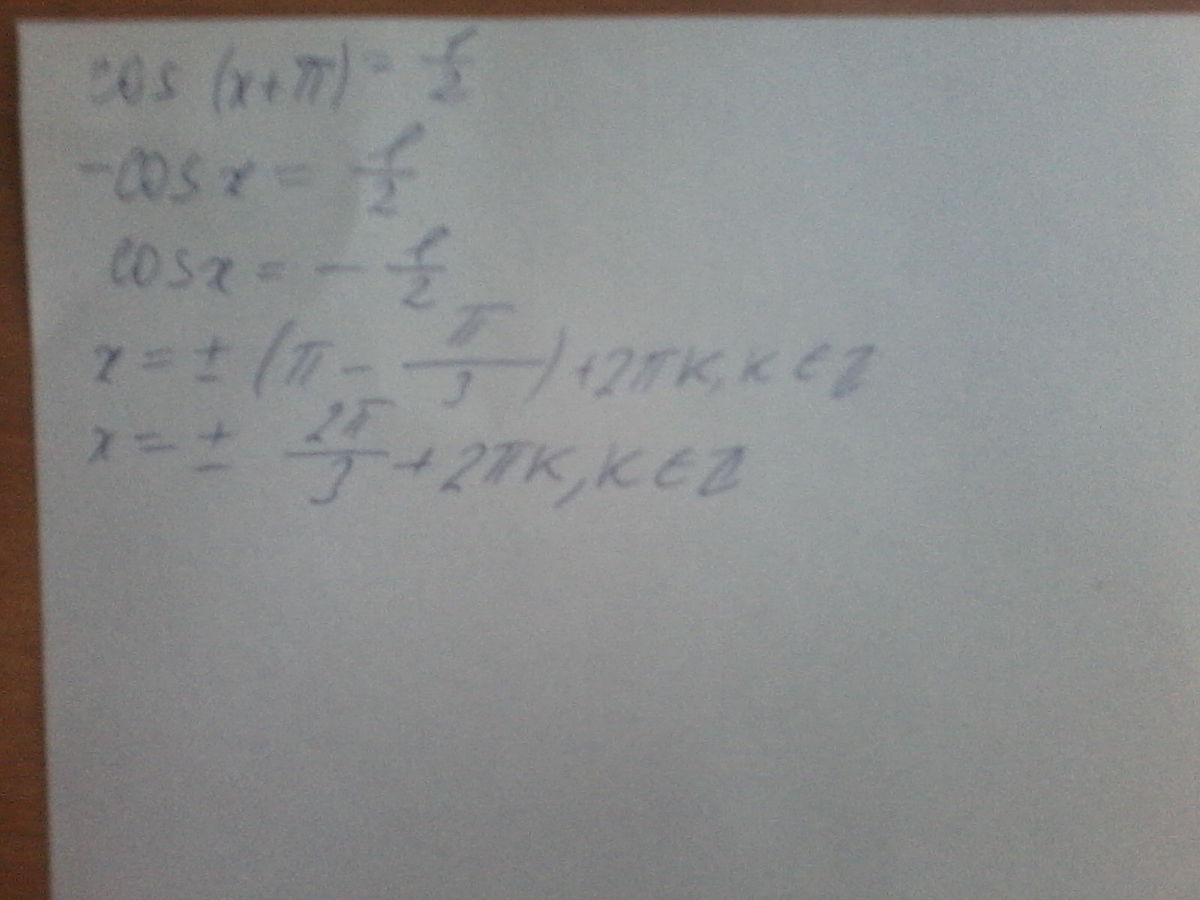 cos (x+π) = 1/2
-cos x = 1/2
cos x = - 1/2
x = ± (π - π/3) +2πk, k ∈ Z
x = ± 2π/3 + 2πk, k ∈ Z